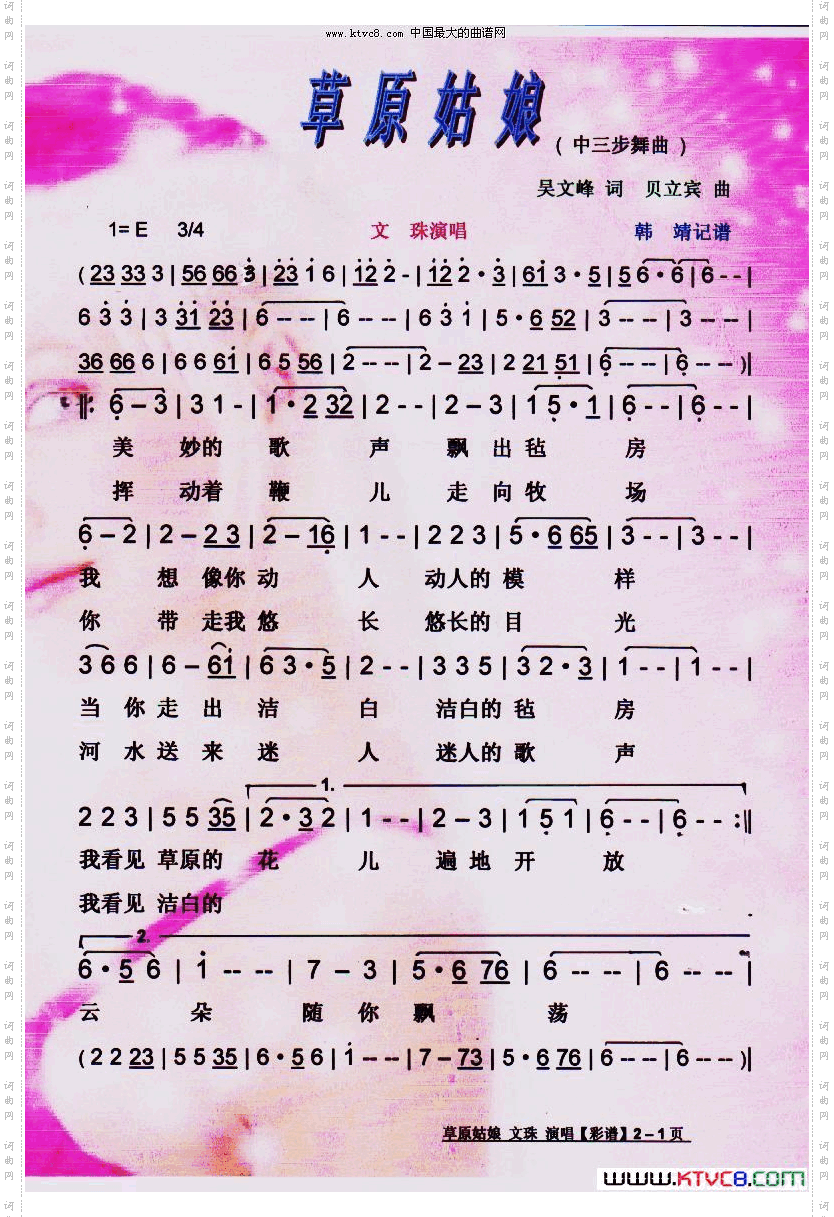 www.ktvc8.com 中国最大的曲谱网
草原姑娘
( 中三步舞曲 )
吴文峰 词 贝立宾 曲
1=E 3/4 文 珠演唱 韩 靖记谱
( 23 33 3 | 56 66 3 | 23 1 6 | 12 2 - | 12 2 · 3 | 61 3 · 5 | 5 6 · 6 | 6 - - |
6 3 3 | 3 31 23 | 6 -- -- | 6 -- -- | 6 3 1 | 5 · 6 52 | 3 -- -- | 3 -- -- |
36 66 6 | 6 6 61 | 6 5 56 | 2 -- -- | 2 – 23 | 2 21 51 | 6 -- -- | 6 -- -- )|
‖: 6 – 3 | 3 1 - | 1 · 2 32 | 2 - - | 2 – 3 | 1 5 · 1 | 6 - - | 6 - - |
美 妙的 歌 声 飘 出 毡 房
挥 动着 鞭 儿 走 向 牧 场
6 – 2 | 2 – 2 3 | 2 – 16 | 1 - - | 2 2 3 | 5 · 6 65 | 3 - - | 3 - - |
我 想 像你 动 人 动人的 模 样
你 带 走我 悠 长 悠长的 目 光
3 6 6 | 6 – 61 | 6 3 · 5 | 2 - - | 3 3 5 | 3 2 · 3 | 1 - - | 1 - - |
当 你 走 出 洁 白 洁白的 毡 房
河 水 送 来 迷 人 迷人的 歌 声
1.
2 2 3 | 5 5 35 | 2 · 3 2 | 1 - - | 2 – 3 | 1 5 1 | 6 - - | 6 - - :‖
我看见 草原的 花 儿 遍 地 开 放
我看见 洁白的
2.
6 · 5 6 | 1 -- -- | 7 – 3 | 5 · 6 76 | 6 -- -- | 6 -- -- |
云 朵 随 你 飘 荡
( 2 2 23 | 5 5 35 | 6 · 5 6 | 1 -- -- | 7 – 73 | 5 · 6 76 | 6 -- -- | 6 -- -- )‖
草原姑娘 文珠 演唱【彩谱】2－1页
www.KTVC8.com
词曲网